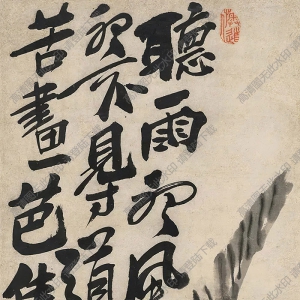 聽雨聽風
聽不得道
苦畫芭蕉